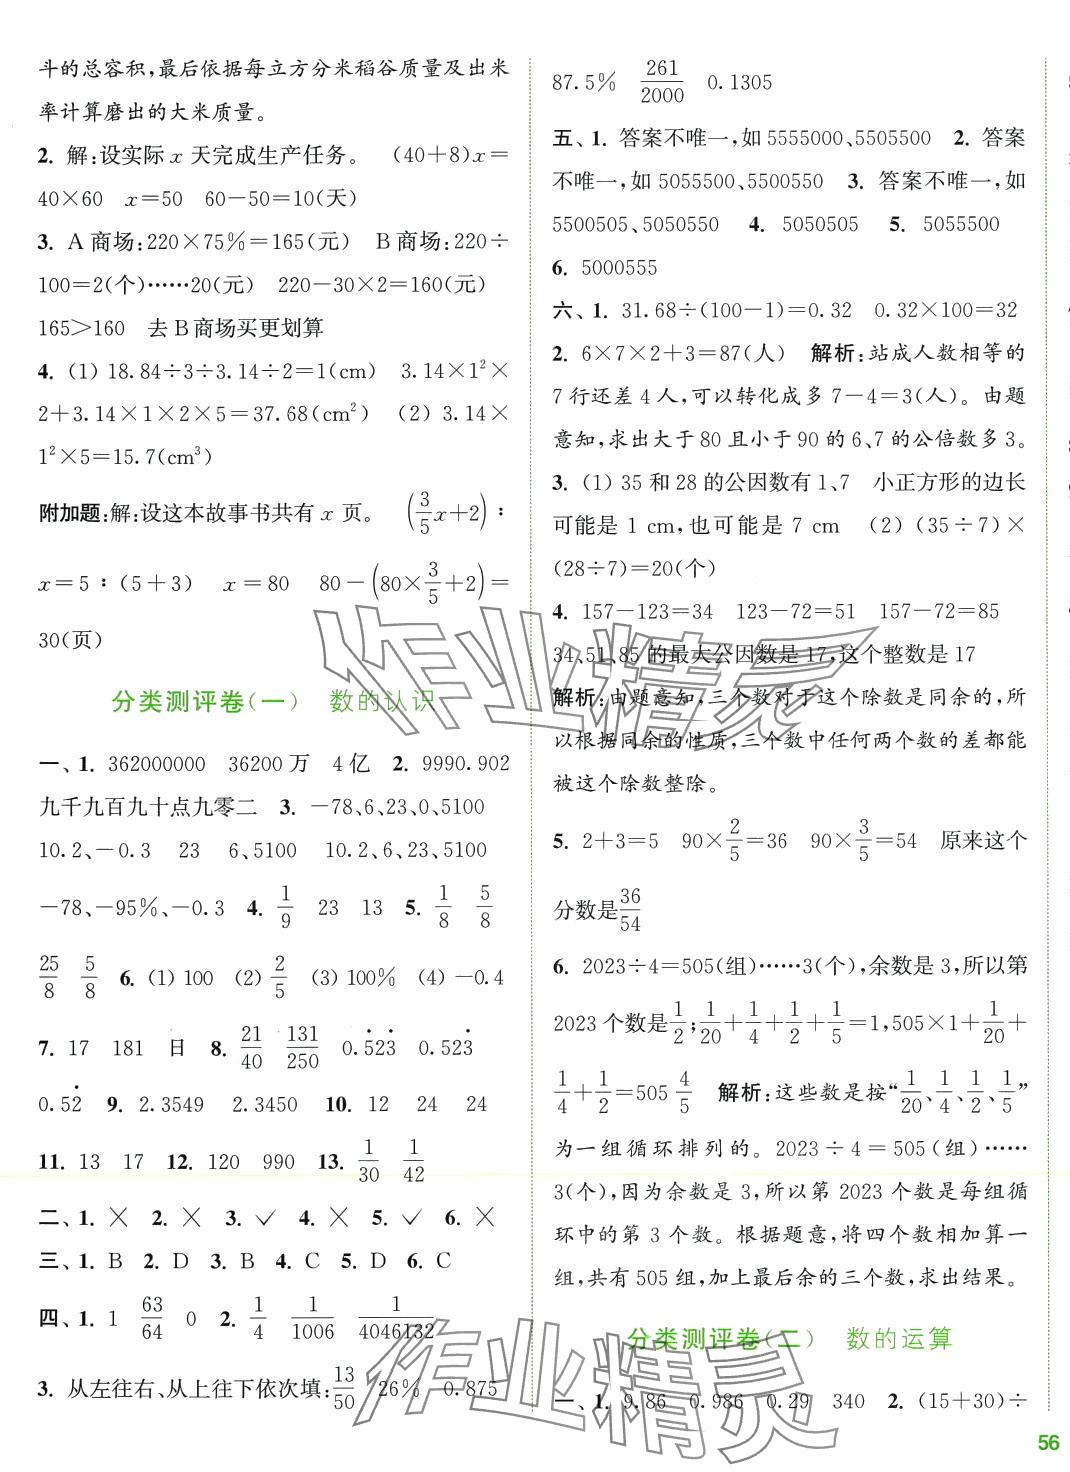 斗的总容积,最后依据每立方分米稻谷质量及出米
率计算磨出的大米质量。
2. 解:设实际 x 天完成生产任务。 (40+8)x=
40×60 x=50 60-50=10(天)
3. A 商场:220×75%=165(元) B 商场:220÷
100=2(个)……20(元) 220-30×2=160(元)
165>160 去 B 商场买更划算
4. (1) 18.84÷3÷3.14÷2=1(cm) 3.14×1²×
2+3.14×1×2×5=37.68(cm²) (2) 3.14×
1²×5=15.7(cm³)
附加题:解:设这本故事书共有 x 页。 (3/5x+2)∶
x=5∶(5+3) x=80 80-(80×3/5+2)=
30(页)
分类测评卷(一) 数的认识
一、1. 362000000 36200 万 4 亿 2. 9990.902
九千九百九十点九零二 3. -78、6、23、0、5100
10.2、-0.3 23 6、5100 10.2、6、23、5100
-78、-95%、-0.3 4. 1/9 23 13 5. 1/8 5/8
25/8 5/8 6. (1) 100 (2) 2/5 (3) 100% (4) -0.4
7. 17 181 日 8. 21/40 131/250 0.52̇3̇ 0.523̇
0.52̇ 9. 2.3549 2.3450 10. 12 24 24
11. 13 17 12. 120 990 13. 1/30 1/42
二、1. × 2. × 3. ✓ 4. × 5. ✓ 6. ×
三、1. B 2. D 3. B 4. C 5. D 6. C
四、1. 1 63/64 0 2. 1/4 1/1006 1/4046132
3. 从左往右、从上往下依次填:13/50 26% 0.875
87.5% 261/2000 0.1305
五、1. 答案不唯一,如 5555000、5505500 2. 答案
不唯一,如 5055500、5500550 3. 答案不唯一,如
5500505、5050550 4. 5050505 5. 5055500
6. 5000555
六、1. 31.68÷(100-1)=0.32 0.32×100=32
2. 6×7×2+3=87(人) 解析:站成人数相等的
7 行还差 4 人,可以转化成多 7-4=3(人)。由题
意知,求出大于 80 且小于 90 的 6、7 的公倍数多 3。
3. (1) 35 和 28 的公因数有 1、7 小正方形的边长
可能是 1 cm,也可能是 7 cm (2) (35÷7)×
(28÷7)=20(个)
4. 157-123=34 123-72=51 157-72=85
34、51、85 的最大公因数是 17,这个整数是 17
解析:由题意知,三个数对于这个除数是同余的,所
以根据同余的性质,三个数中任何两个数的差都能
被这个除数整除。
5. 2+3=5 90×2/5=36 90×3/5=54 原来这个
分数是36/54
6. 2023÷4=505(组)……3(个),余数是 3,所以第
2023 个数是1/2;1/20+1/4+1/2+1/5=1,505×1+1/20+
1/4+1/2=505 4/5 解析:这些数是按“1/20、1/4、1/2、1/5”
为一组循环排列的。2023÷4=505(组)……
3(个),因为余数是 3,所以第 2023 个数是每组循
环中的第 3 个数。根据题意,将四个数相加算一
组,共有 505 组,加上最后余的三个数,求出结果。
分类测评卷(二) 数的运算
一、1. 9.86 0.986 0.29 340 2. (15+30)÷
56
作业精灵
作业精灵